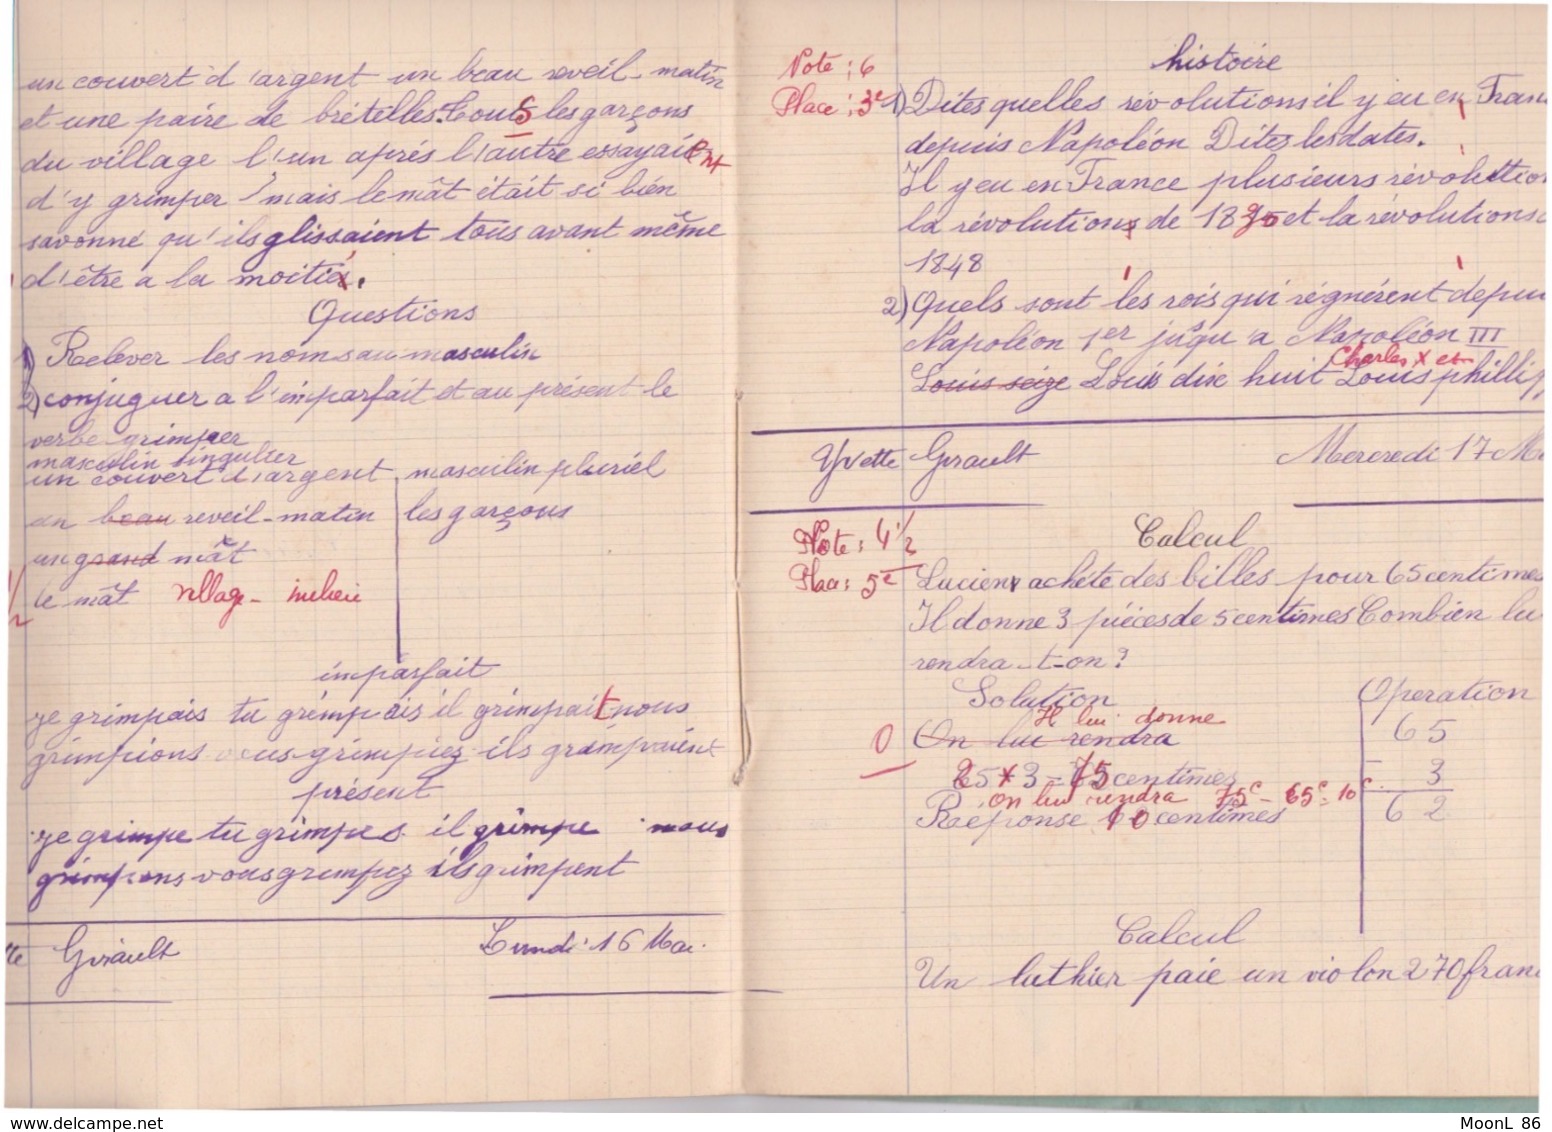 un couvert d'argent un beau reveil-matin
et une paire de brétélles. touts les garçons
du village l'un aprés l'autre essayaient
d'y grimper mais le mât était si bién
savonné qu'ils glissaient tous avant même
d'être a la moitié.
Questions
1) Relever les noms au masculin
2) conjuguer a l'imparfait et au présent le
verbe grimper
masculin singulier
un couvert d'argent masculin pluriel
un beau reveil-matin les garçons
un grand mât
le mât village - milieu
1/2
imparfait
je grimpais tu grimpais il grimpait nous
grimpions vous grimpiez ils grimpaient
présent
je grimpe tu grimpes il grimpe nous
grimpons vous grimpez ils grimpent
tte Girault Lundi 16 Mai.
histoire
Note : 6
Place : 3e 1) Dites quelles révolutions il y eu en Fran
depuis Napoléon Dites les dates.
Il y eu en France plusieurs révolution
la révolutions de 18 et la révolutions
1848
2) Quels sont les rois qui régnérent depui
Napoléon 1er jusqu'a Napoléon III
Charles X et
Louis seize Louis dix huit Louis phillip
Yvette Girault Mercredi 17 Ma
Calcul
Note : 4 1/2
Place : 5e Lucien achéte des billes pour 65 centimes
Il donne 3 piéces de 5 centimes Combien lu
rendra-t-on?
Solution Operation
Il lui donne
0 On lui rendra 65
25 x 3 = 75 centimes - 3
On lui rendra 75c - 65c = 10c
Réponse 10 centimes 62
Calcul
Un luthier paie un violon 270 fran
MoonL 86